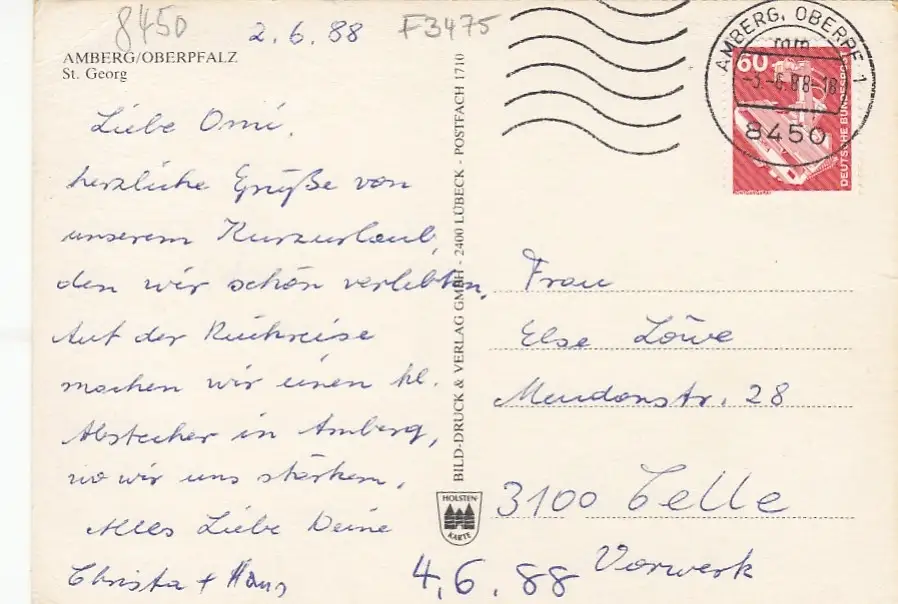 8450
2.6.88
F3475
AMBERG/OBERPFALZ
St. Georg
Liebe Omi,
herzliche Grüße von
unserem Kurzurlaub,
den wir schön verlebten.
Auf der Rückreise
machen wir einen kl.
Abstecher in Amberg,
wo wir uns stärken.
Alles Liebe Deine
Christa + Hans
4.6.88
BILD-DRUCK & VERLAG GMBH - 2400 LÜBECK - POSTFACH 1710
HOLSTEN
KARTE
AMBERG, OBERPF 1
mm
-3.-6.88-18
8450
60
DEUTSCHE BUNDESPOST
Frau
Else Löwe
Mendonstr. 28
3100 Celle
Vorwerk